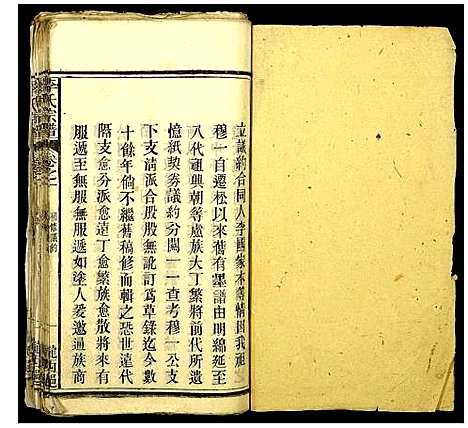 立議約合同人李國家本等情因我祖
穆一自遷松以來舊有墨譜由明綿延至
八代祖興朝等慮族大丁繁將前代所遺
憶紙契券議約分關一一查考穆一公支
下支清派合股股無訛訂爲草錄迄今數
十餘年倘不繼舊稿修而輯之恐世遠代
隔支愈分派愈遠丁愈繁族愈散將來有
服遞至無服無服遞如塗人爰邀過族商
李氏宗譜
卷之一